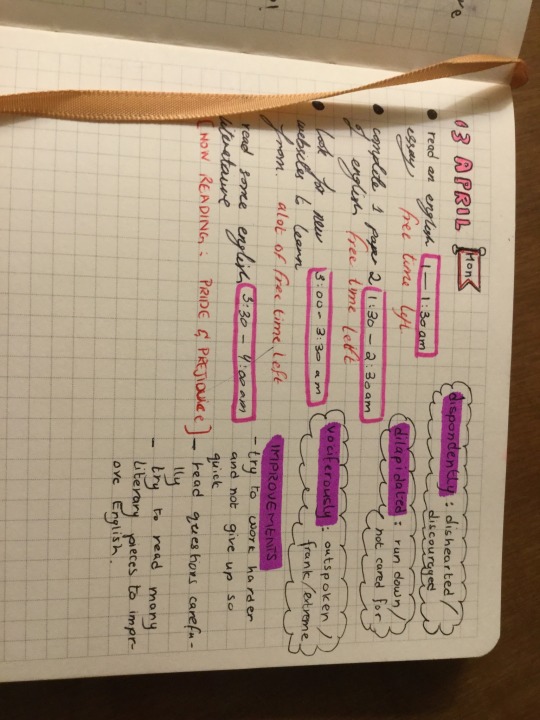 13 APRIL Mon
• read an english 1 - 1:30am
essay free time left.
• complete 1 paper 2 1:30 - 2:30am
of english free time left
• look for new 3:00 - 3:30 am
websites to learn
from. alot of free time left
read some english 3:30 - 4:00am
literature
[NOW READING: PRIDE & PREJIDUICE]
dispondently: disheartted/
discouraged
dilapidated: run down/
not cared for
vociferously: outspoken/
frank/extreme
IMPROVEMENTS
- try to work harder
and not give up so
quick
- read questions carefu-
lly
- try to read many
literary pieces to impr-
ove English.